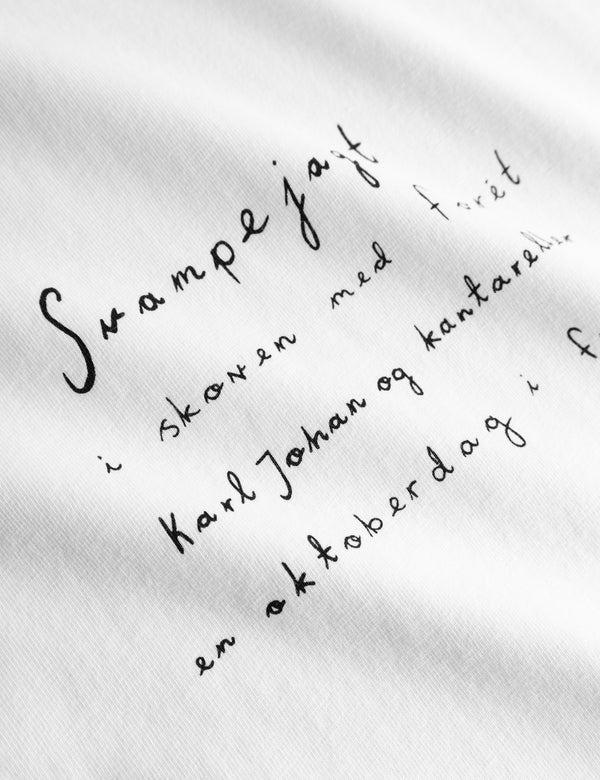 Svampejagt
i skoven med
Karl Johan og kantareller
en oktoberdag i